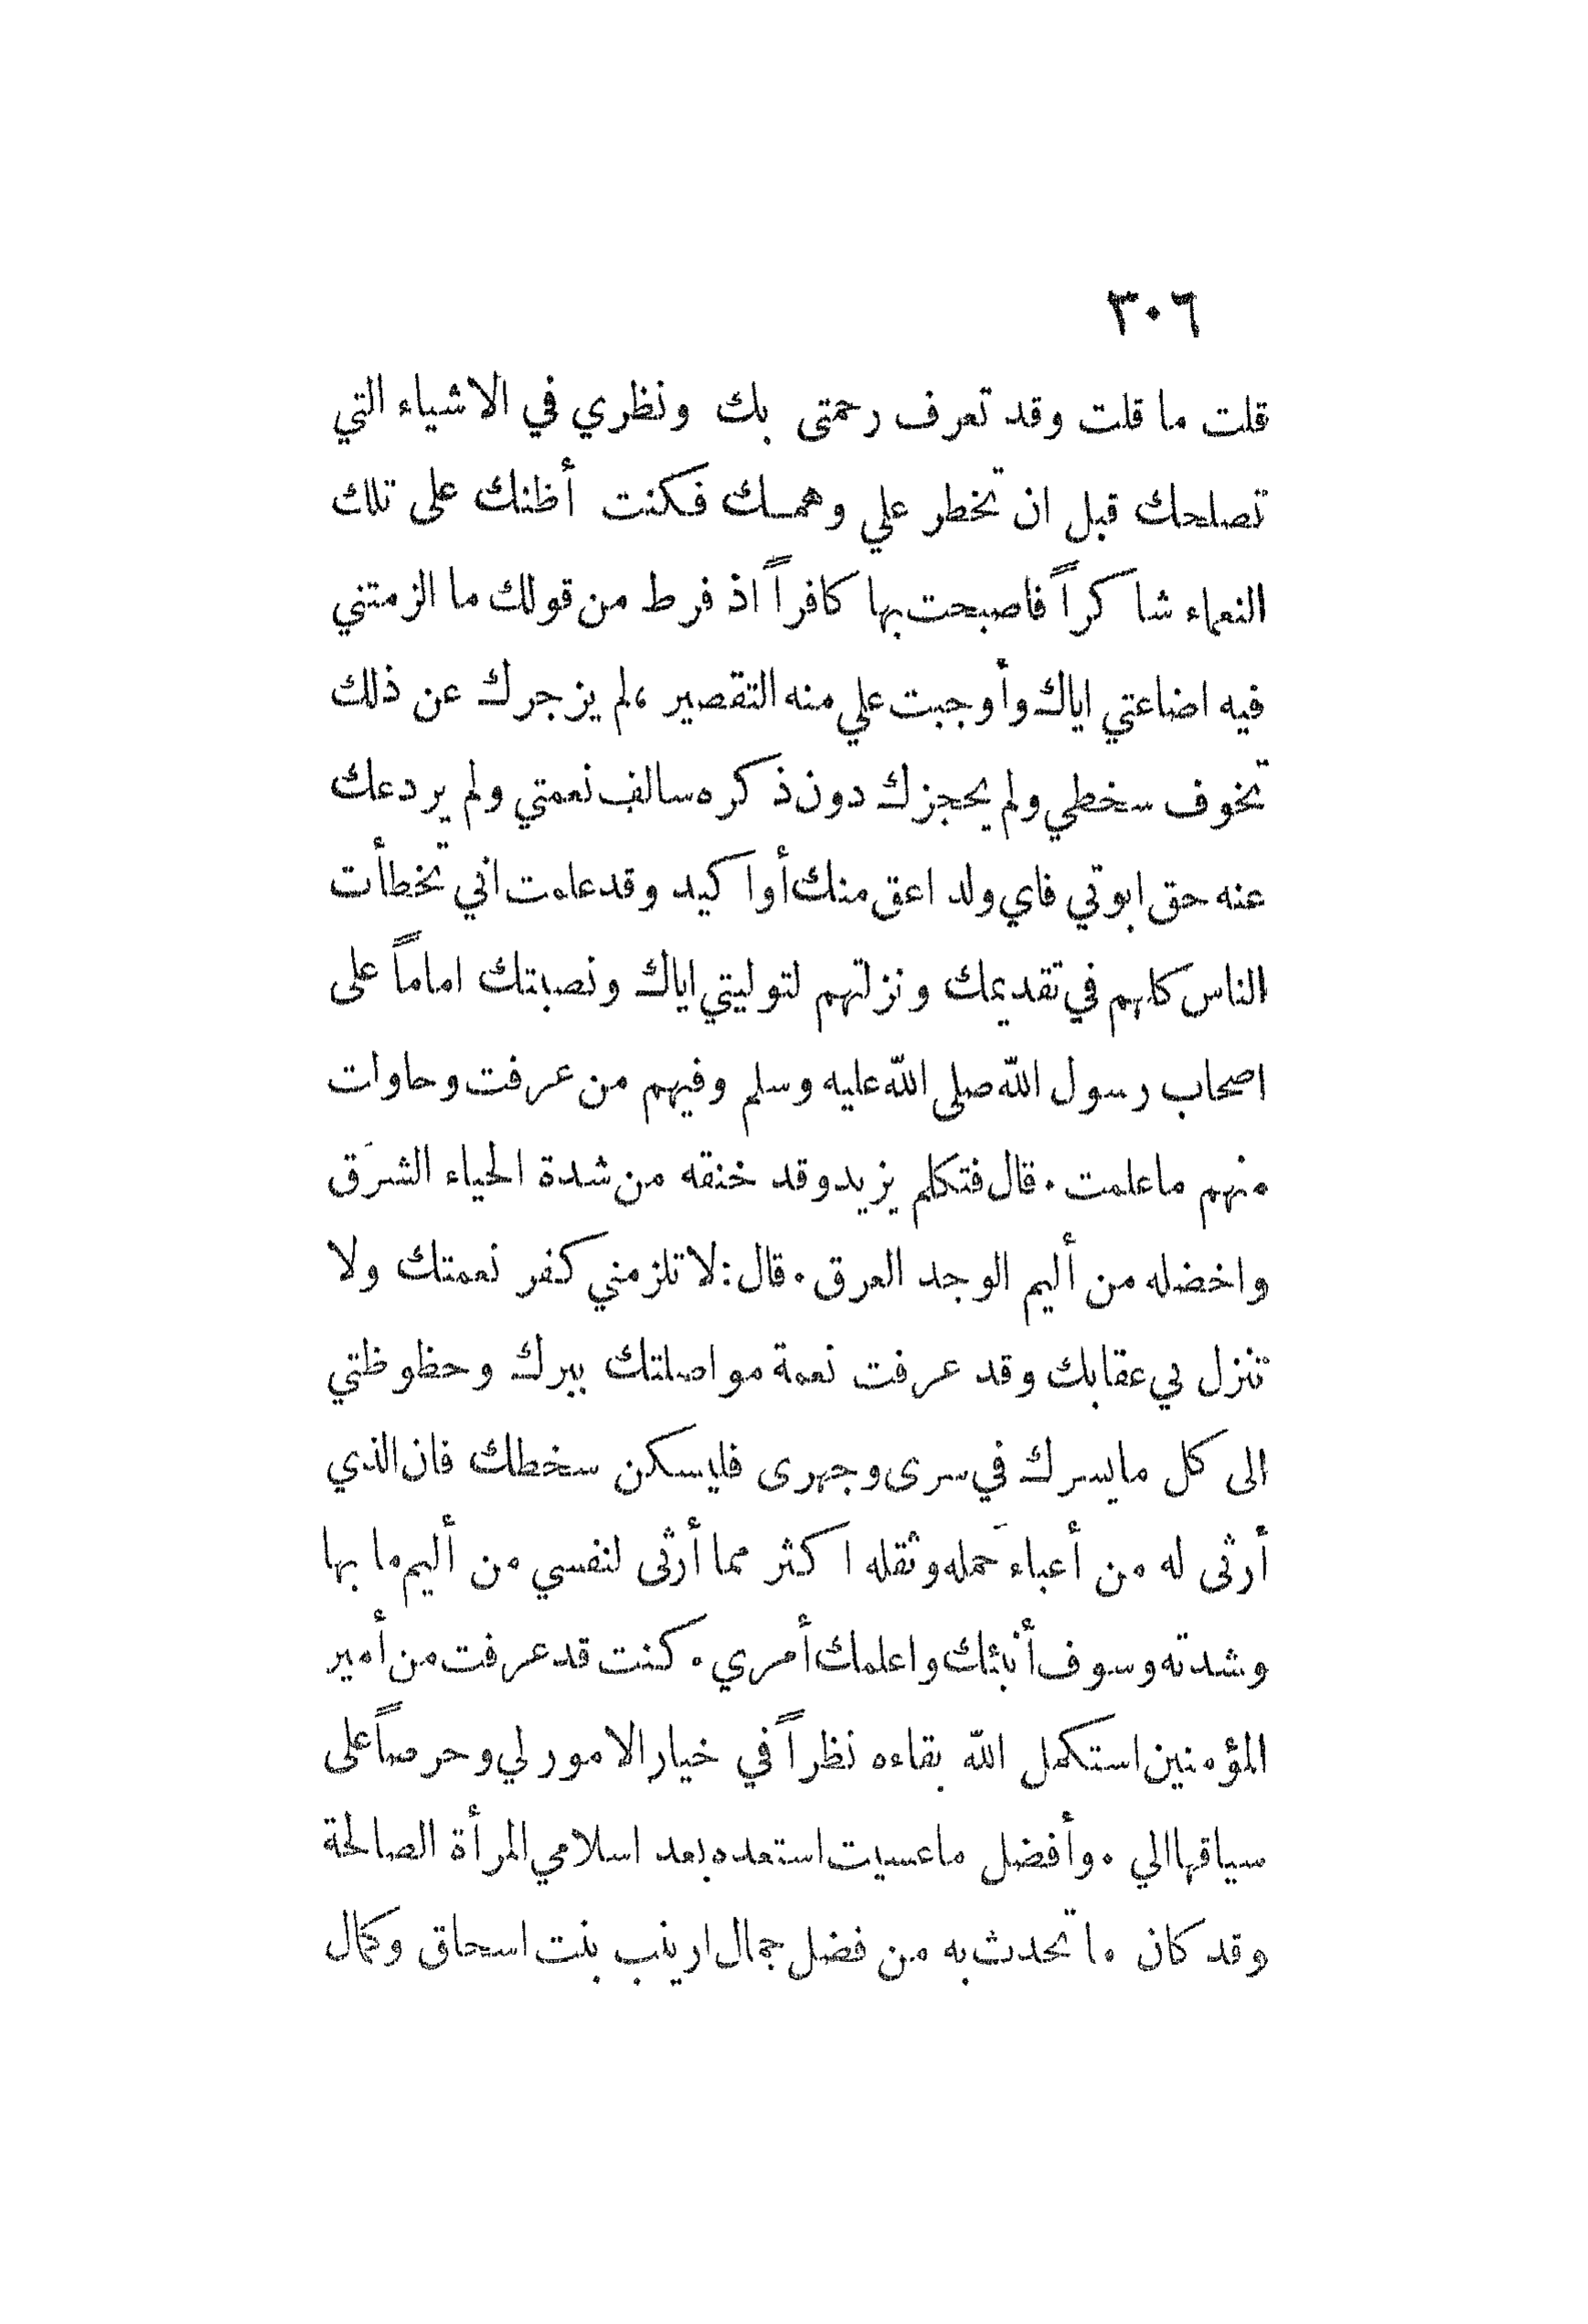 ٣٠٦
قلت ما قلت وقد تعرف رحمتى بك ونظري في الاشياء التي
تصلحك قبل ان تخطر علي وهمسك فكنت أظنك على تلك
النعماء شاكراً فاصبحت بها كافراً اذ فرط من قولك ما الزمتني
فيه اضاعتي اياك وأوجبت علي منه التقصير ، لم يزجرك عن ذلك
تخوف سخطي ولم يحجزك دون ذكره سالف نعمتي ولم يردعك
عنه حق ابوتي فاي ولد اعق منك أوا كيد وقد علمت اني تخطأت
الناس كلهم في تقديمك ونزلتهم لتوليتي اياك ونصبتك اماماً على
اصحاب رسول الله صلى الله عليه وسلم وفيهم من عرفت وحاولت
منهم ما علمت . قال فتكلم يزيد وقد خنقه من شدة الحياء الشرَق
واخضله من أليم الوجد العرق . قال : لا تلزمني كفر نعمتك ولا
تنزل بي عقابك وقد عرفت نعمة مواصلتك ببرك وحظوظتي
الى كل ما يسرك في سرى وجهرى فليسكن سخطك فان الذي
أرثى له من أعباء حَمله وثقله اكثر مما أرثى لنفسي من أليم ما بها
وشدته وسوف أنبئك واعلمك أمري . كنت قد عرفت من أمير
المؤمنين استكمل الله بقاءه نظراً في خيار الامور لي وحرصاً على
سياقها الي . وأفضل ما عسيت استعده بعد اسلامي المرأة الصالحة
وقد كان ما تحدث به من فضل جمال ارينب بنت اسحاق وكمال